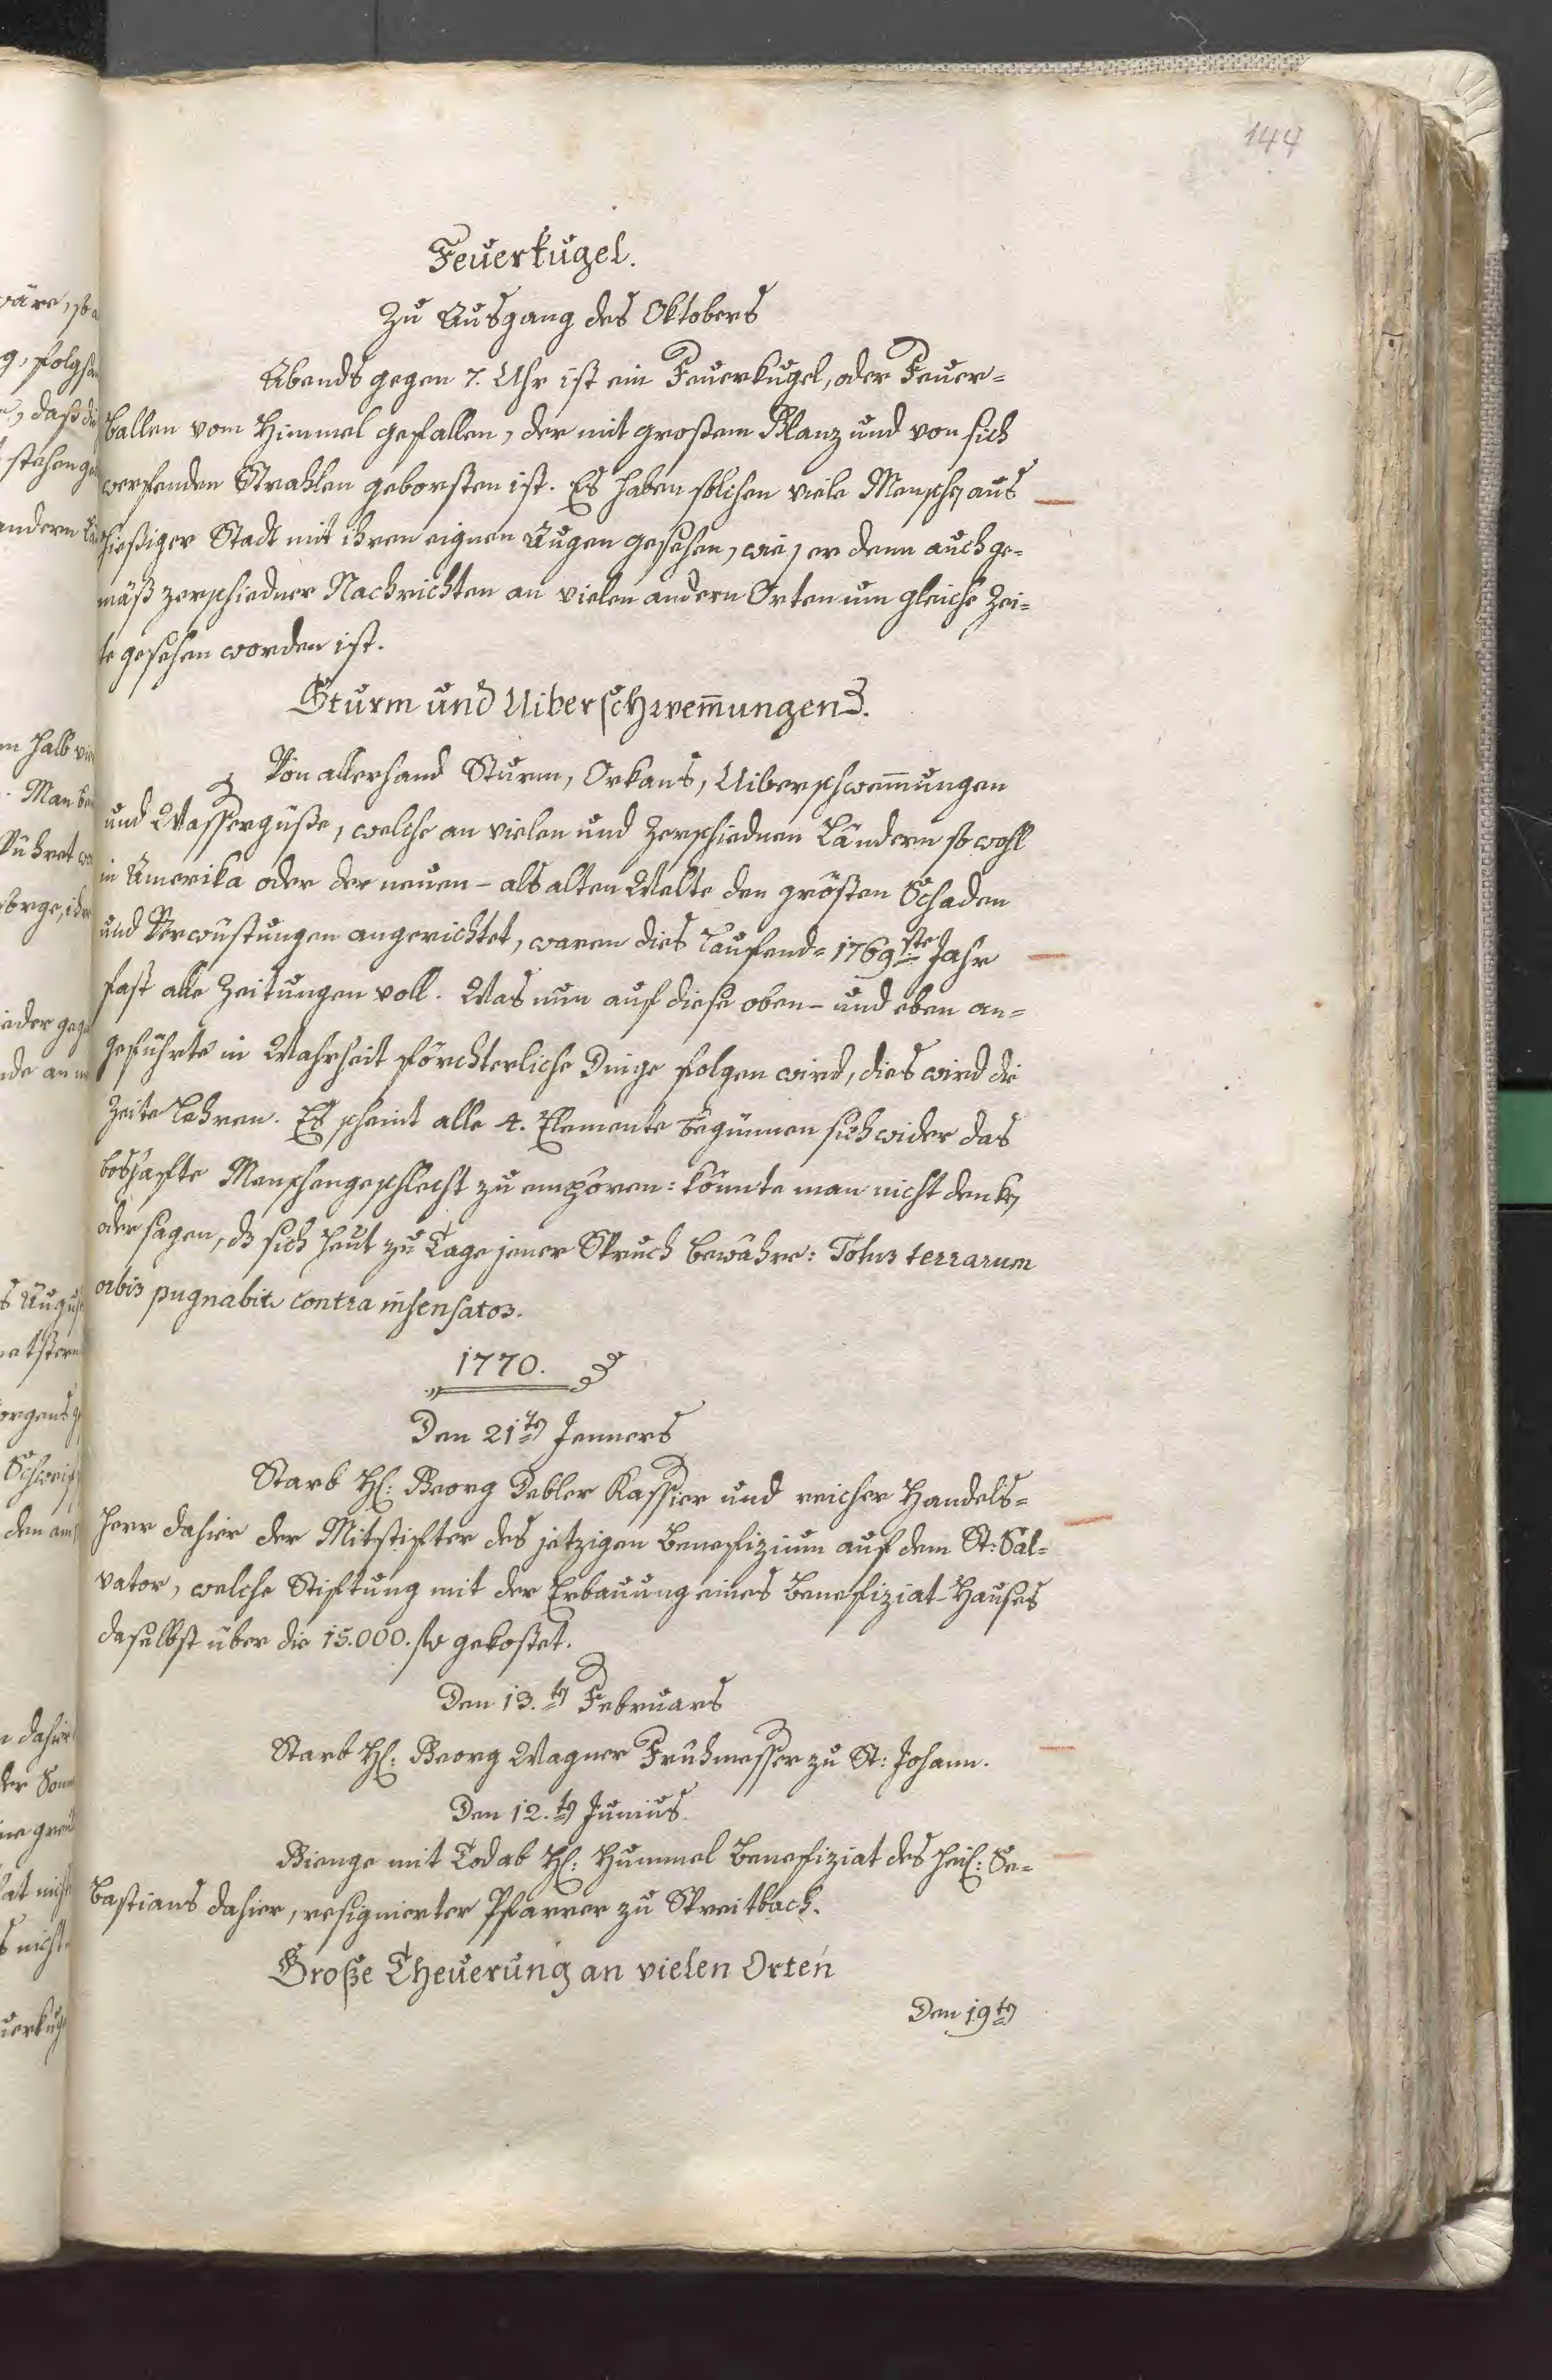 144
Feuerkugel.
Zu Ausgang des Oktobers
Abends gegen 7. Uhr ist ein Feuerkugel, oder Feuer=
ballen vom Himmel gefallen, der mit großem Glanz und von sich
werfenden Strahlen geborsten ist. Es haben solchen viele Menschen aus
hießiger Stadt mit ihren eignen Augen gesehen, wie, er denn auch ge=
mäß zerschiedner Nachrichten an vielen andern Orten um gleiche Zei=
te gesehen worden ist.
Sturm und Uiberschwem̅ungen.
Von allerhand Sturm, Orkans, Uiberschwem̅ungen
und Wassergüße, welche an vielen und zerschiednen Ländern so wohl
in Amerika oder der neuen- als alten Welte den grösten Schaden
und Verwüstungen angerichtet, waren dies laufend= 1769ste Jahr
fast alle Zeitungen voll. Was nun auf diese oben- und eben an=
geführte in Wahrheit förchterliche Dinge folgen wird, dies wird die
Zeite lehren. Es scheint alle 4. Elemente begünnen sich wider das
boshafte Menschengeschlecht zu empören: könnte man nicht denken
oder sagen, dß sich heut zu Tage jener Spruch bewähre: Totus terrarum
orbis pugnabit contra insensatos.
1770.
Den 21ten Jenners
Starb H: Georg Debler Kassier und reicher Handels=
herr dahier der Mitstifter des jetzigen Benefizium auf dem St: Sal=
vator, welche Stiftung mit der Erbauung eines Benefiziat-Hauses
daselbst über die 15.000. fl gekostet.
Den 13.ten Februars
Starb H: Georg Wagner Frühmesser zu St: Johann.
Den 12.ten Junius.
Gienge mit Tod ab H: Hummel Benefiziat des heil: Se=
bastians dahier, resignierter Pfarrer zu Spreitbach.
Große Theuerung an vielen Orten
Den 19ten